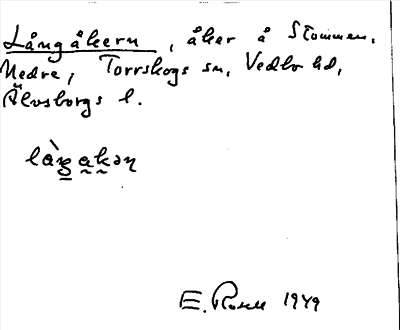 Långåkern, åker å Stommen,
Nedre, Torrskogs sn, Vedbo hd,
Älvsborgs l.
E. 1949